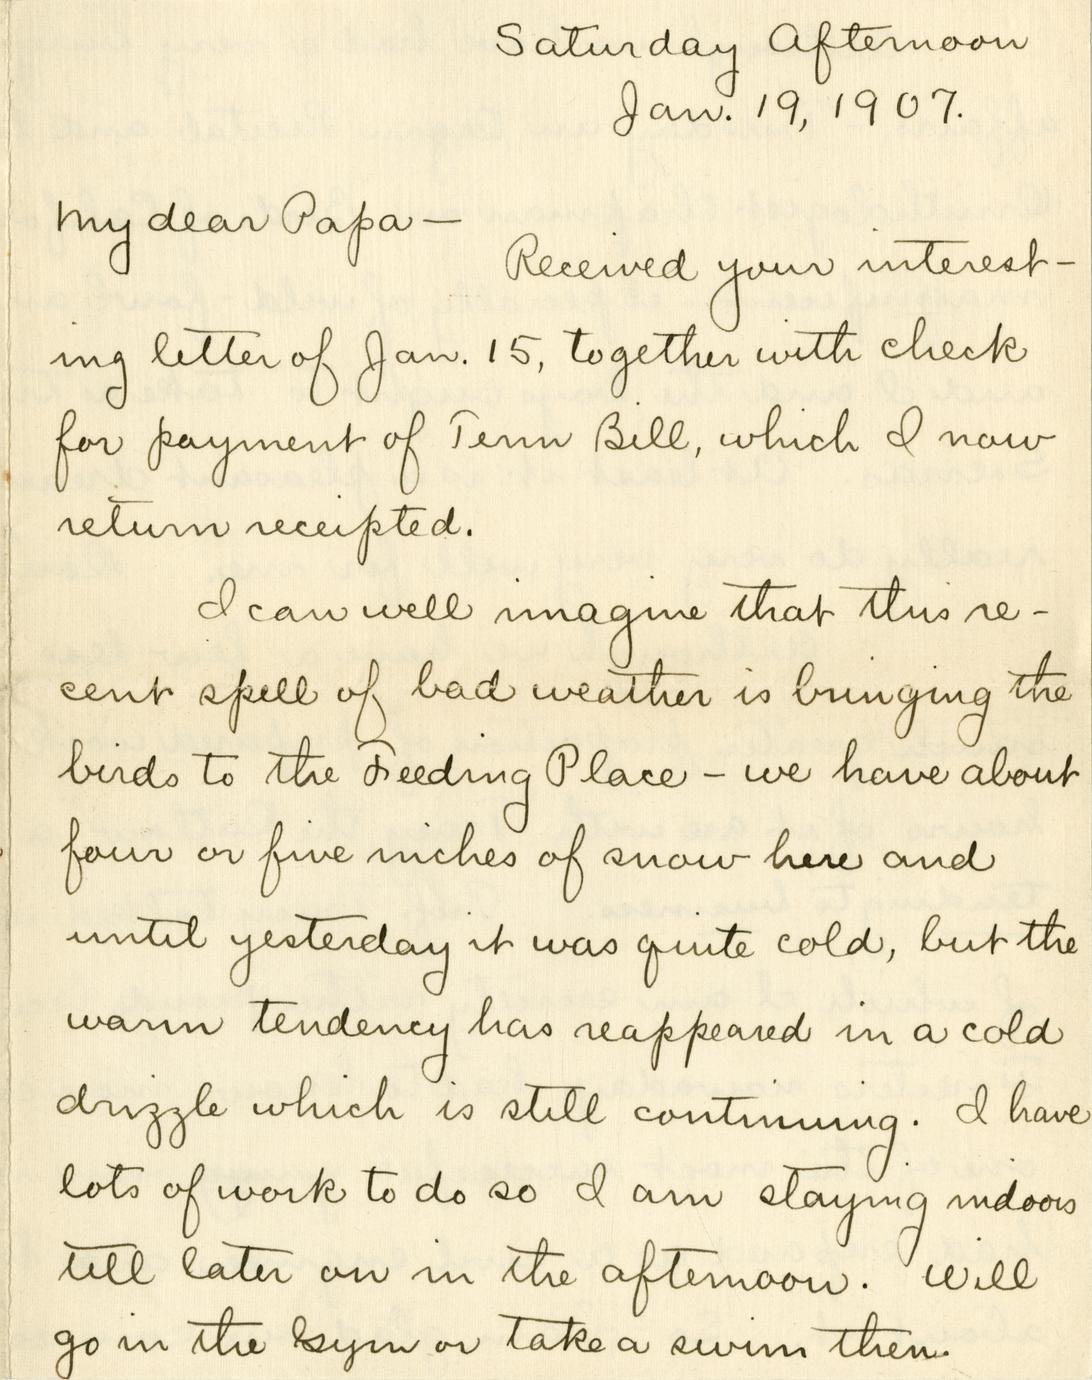 Saturday Afternoon
Jan. 19, 1907.
My dear Papa —
Received your interest-
ing letter of Jan. 15, together with check
for payment of Term Bill, which I now
return receipted.
I can well imagine that this re-
cent spell of bad weather is bringing the
birds to the Feeding Place - we have about
four or five inches of snow here and
until yesterday it was quite cold, but the
warm tendency has reappeared in a cold
drizzle which is still continuing. I have
lots of work to do so I am staying indoors
till later on in the afternoon. Will
go in the Gym or take a swim then.